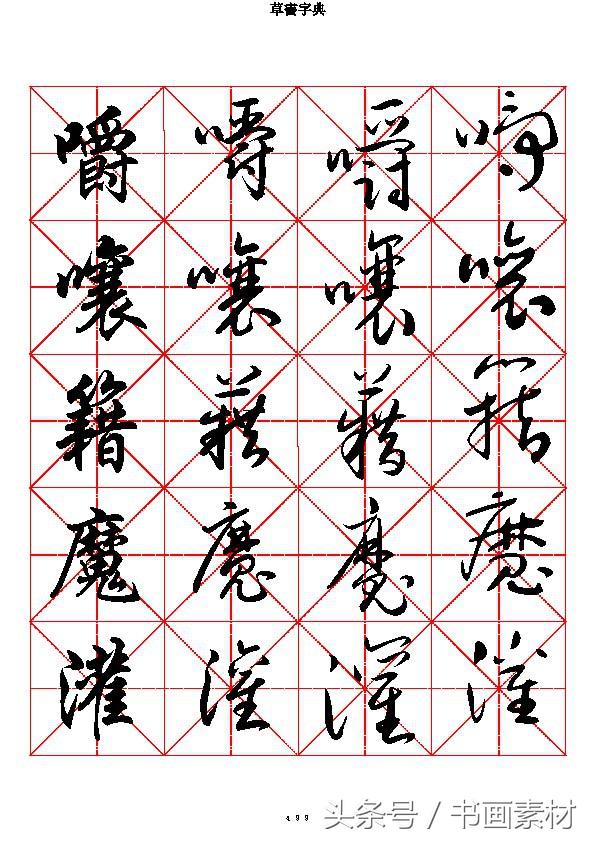 草書字典
嚼 嚼 嚼 嚼
嚷 嚷 嚷 嚷
籍 籍 籍 籍
魔 魔 魔 魔
灌 灌 灌 灌
499
头条号 / 书画素材